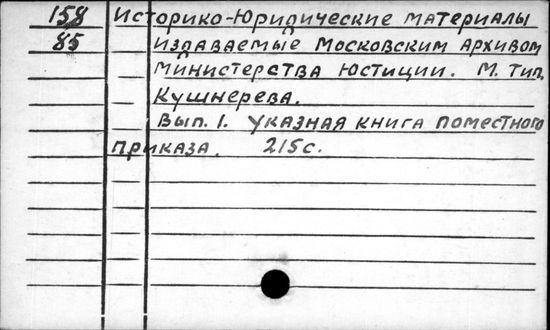 158 Историко-Юридические материалы
85 издаваемые Московским Архивом
Министерства Юстиции. М. Тип.
Кушнерева.
Вып. 1. Указная книга поместного
приказа. 215с.